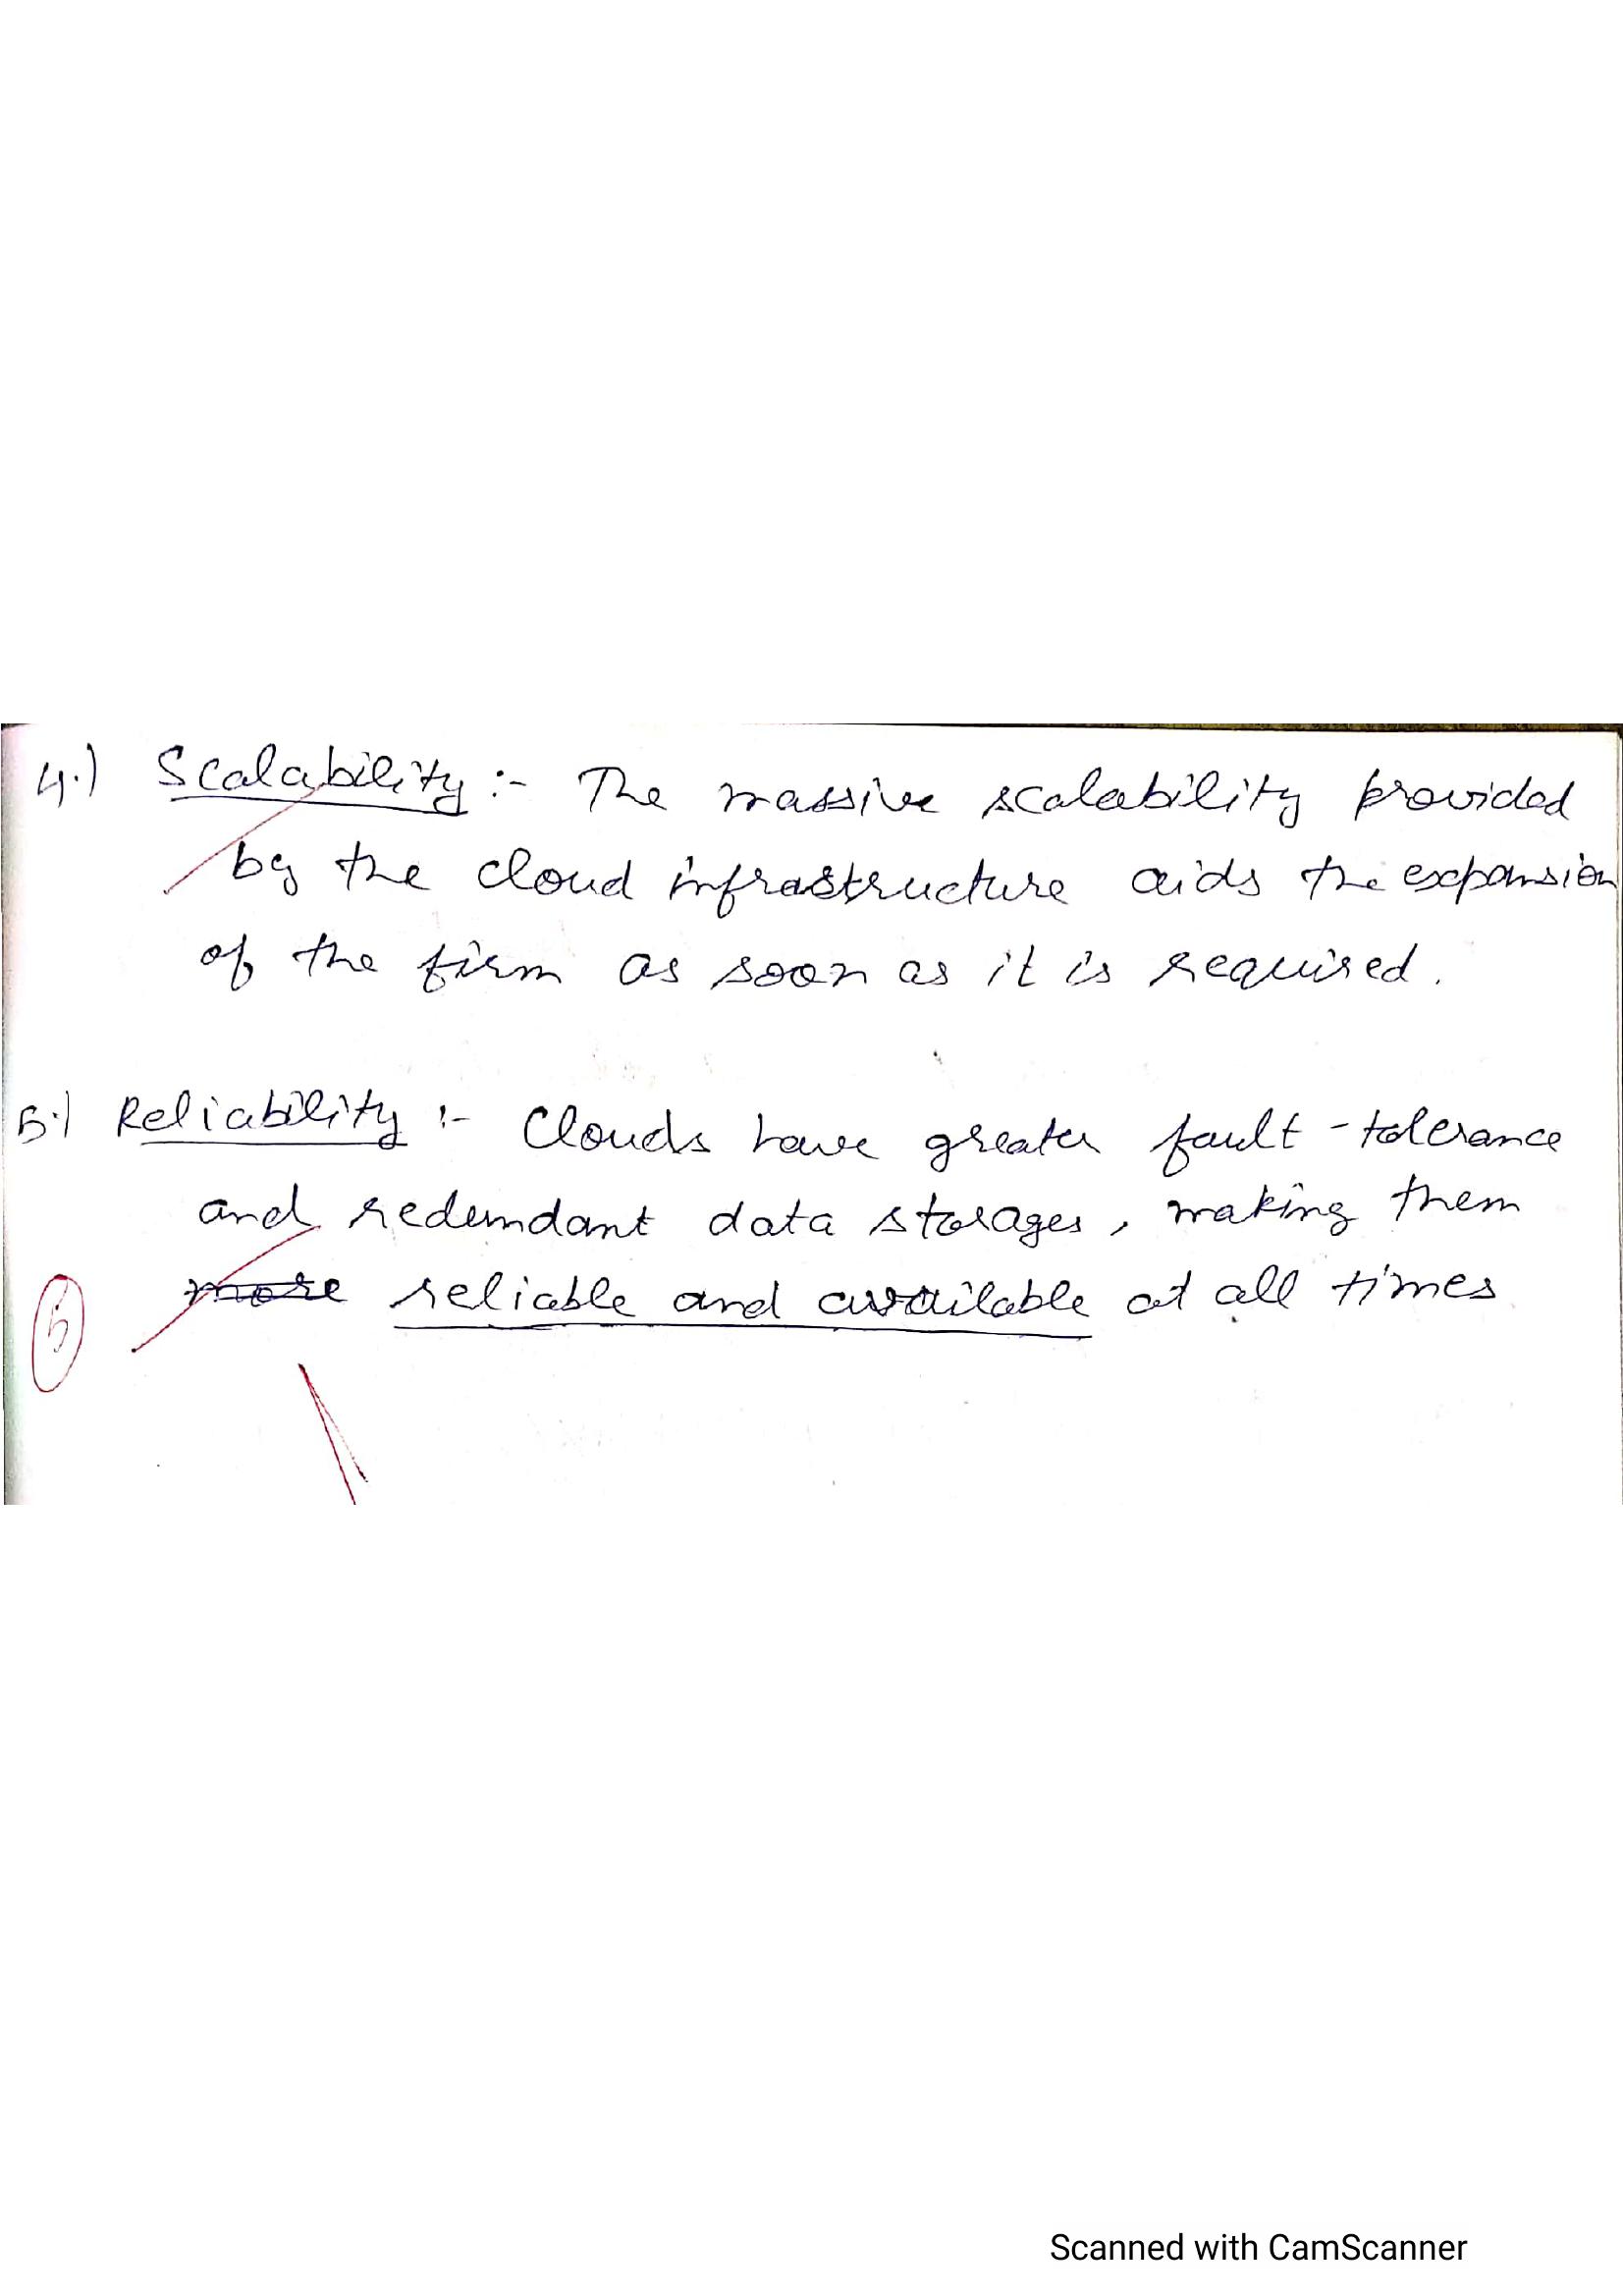 4.) Scalability :- The massive scalability provided
by the cloud infrastructure aids the expansion
of the firm as soon as it is required.
5.) Reliability :- Clouds have greater fault-tolerance
and redundant data storages, making them
more reliable and available at all times
5
Scanned with CamScanner